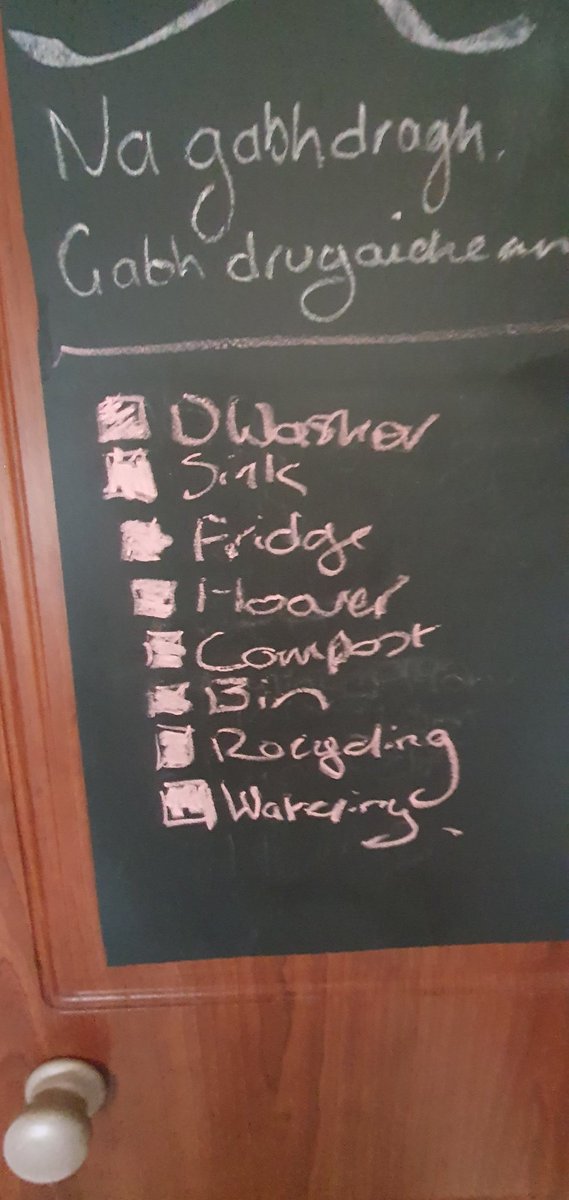 Na gabh dragh.
Gabh drugaichean
DWasher
Sink
Fridge
Hoover
Compost
Bin
Recycling
Watering